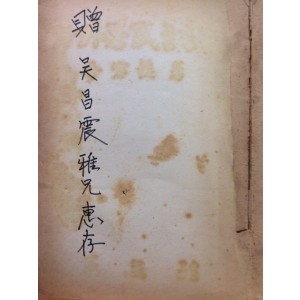 贈 吴昌震雅兄惠存